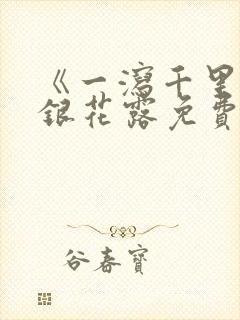 《一瀉千里
銀花露免費
谷春寶